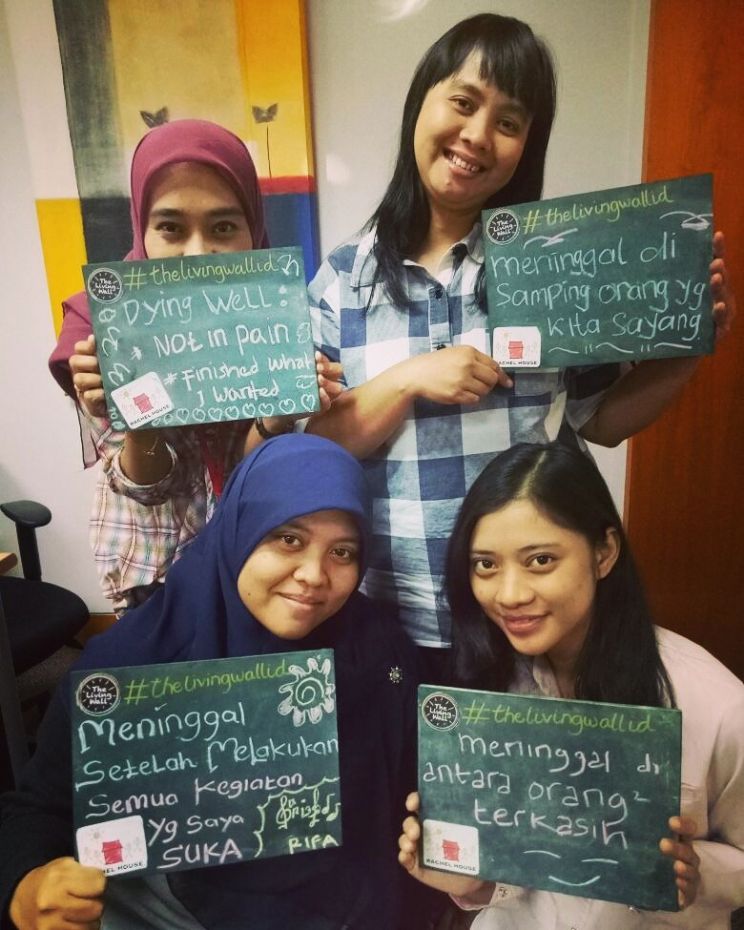 The Living Wall
#thelivingwallid
Dying Well:
* Not in pain
* Finished what
I wanted
RACHEL HOUSE
The Living Wall
#thelivingwallid
meninggal di
samping orang yg
kita sayang
RACHEL HOUSE
The Living Wall
#thelivingwallid
Meninggal
Setelah Melakukan
Semua Kegiatan
Yg Saya
SUKA
RIFA
RACHEL HOUSE
The Living Wall
#thelivingwallid
meninggal di
antara orang²
terkasih
RACHEL HOUSE